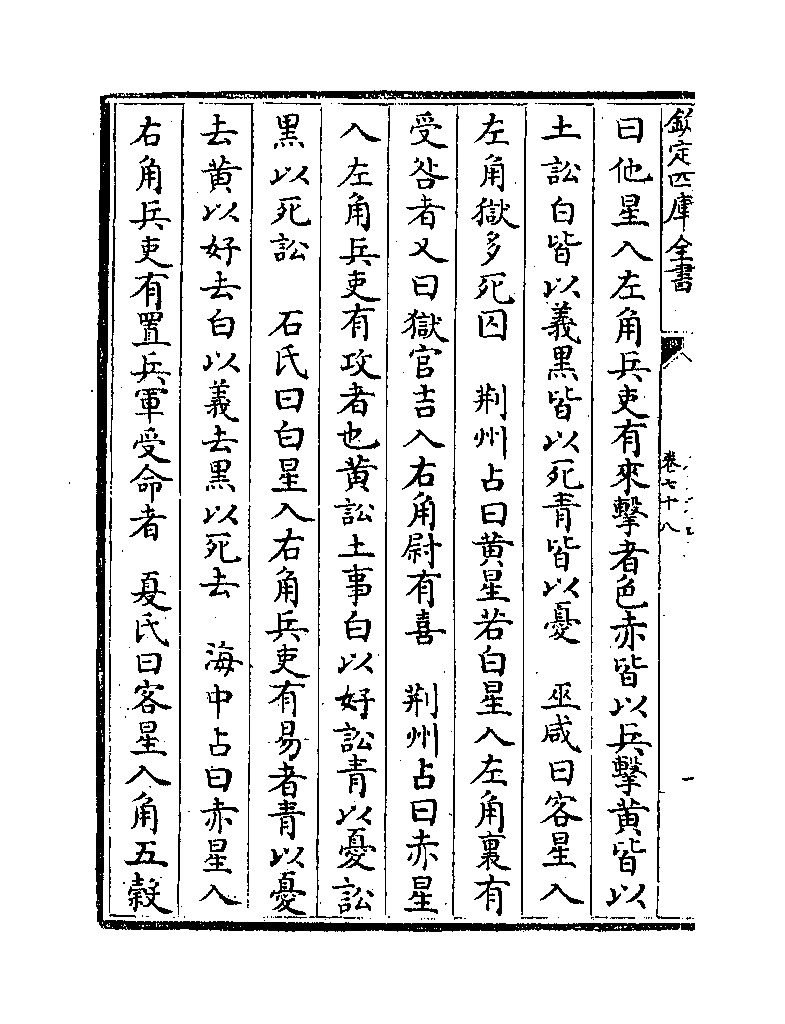 欽定四庫全書
卷七十八
曰他星入左角兵吏有來擊者色赤皆以兵擊黄皆以
土訟白皆以義黒皆以死青皆以憂　巫咸曰客星入
左角獄多死囚　荆州占曰黄星若白星入左角裏有
受咎者又曰獄官吉入右角尉有喜　荆州占曰赤星
入左角兵吏有攻者也黄訟土事白以好訟青以憂訟
黒以死訟　石氏曰白星入右角兵吏有易者青以憂
去黄以好去白以義去黒以死去　海中占曰赤星入
右角兵吏有置兵軍受命者　夏氏曰客星入角五穀